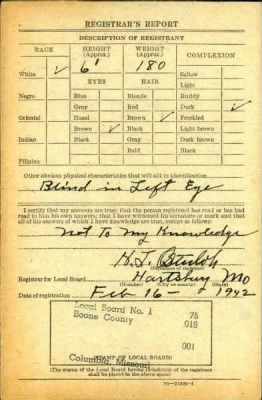 REGISTRAR'S REPORT
DESCRIPTION OF REGISTRANT
RACE HEIGHT (Approx.) WEIGHT (Approx.) COMPLEXION
White ✓ 6' 180 Sallow
Light
EYES HAIR
Negro Blue Blonde Ruddy
Gray Red Dark ✓
Oriental Hazel Brown ✓ Freckled
Brown ✓ Black Light brown
Indian Black Gray Dark brown
Bald Black
Filipino
Other obvious physical characteristics that will aid in identification
Blind in Left Eye
I certify that my answers are true; that the person registered has read or has had
read to him his own answers; that I have witnessed his signature or mark and that
all of his answers of which I have knowledge are true, except as follows:
Not to My Knowledge
(Signature of registrar)
Registrar for Local Board Hartsburg Mo
(Number) (City or county) (State)
Date of registration Feb 16- 1942
Local Board No. 1 75
Boone County 019
001
Columbia, Missouri
(STAMP OF LOCAL BOARD)
(The stamp of the Local Board having jurisdiction of the registrant
shall be placed in the above space)